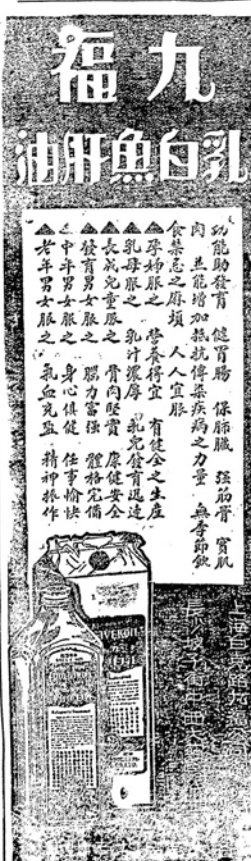 九福
乳白魚肝油
功能助發育　健胃腸　保肺臟　强筋骨　實肌
肉　並能增加抵抗傳染疾病之力量　無季節飲
食禁忌之麻煩　人人宜服
▲孕婦服之　營養得宜　有健全之生產
▲乳母服之　乳汁濃厚　乳兒發育迅速
▲長成兒童服之　骨肉堅實　康健安全
▲發育男女服之　腦力富强　體格完備
▲中年男女服之　身心俱健　任事愉快
▲老年男女服之　氣血充盈　精神振作